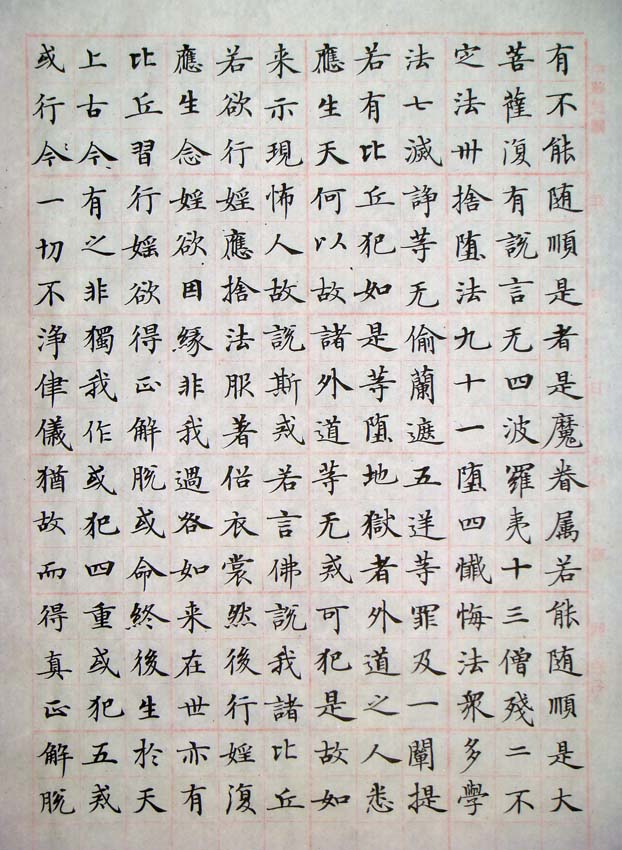 有不能随順是者是魔眷属若能随順是大
菩薩復有說言无四波羅夷十三僧殘二不
定法卅捨堕法九十一堕四懺悔法衆多學
法七滅諍等无偷蘭遮五逆等罪及一闡提
若有比丘犯如是等堕地獄者外道之人悉
應生天何以故諸外道等无戒可犯是故如
来示現怖人故說斯戒若言佛說我諸比丘
若欲行婬應捨法服著俗衣裳然後行婬復
應生念婬欲因縁非我過咎如来在世亦有
比丘習行婬欲得正解脫或命終後生於天
上古今有之非獨我作或犯四重或犯五戒
或行今一切不浄律儀猶故而得真正解脫